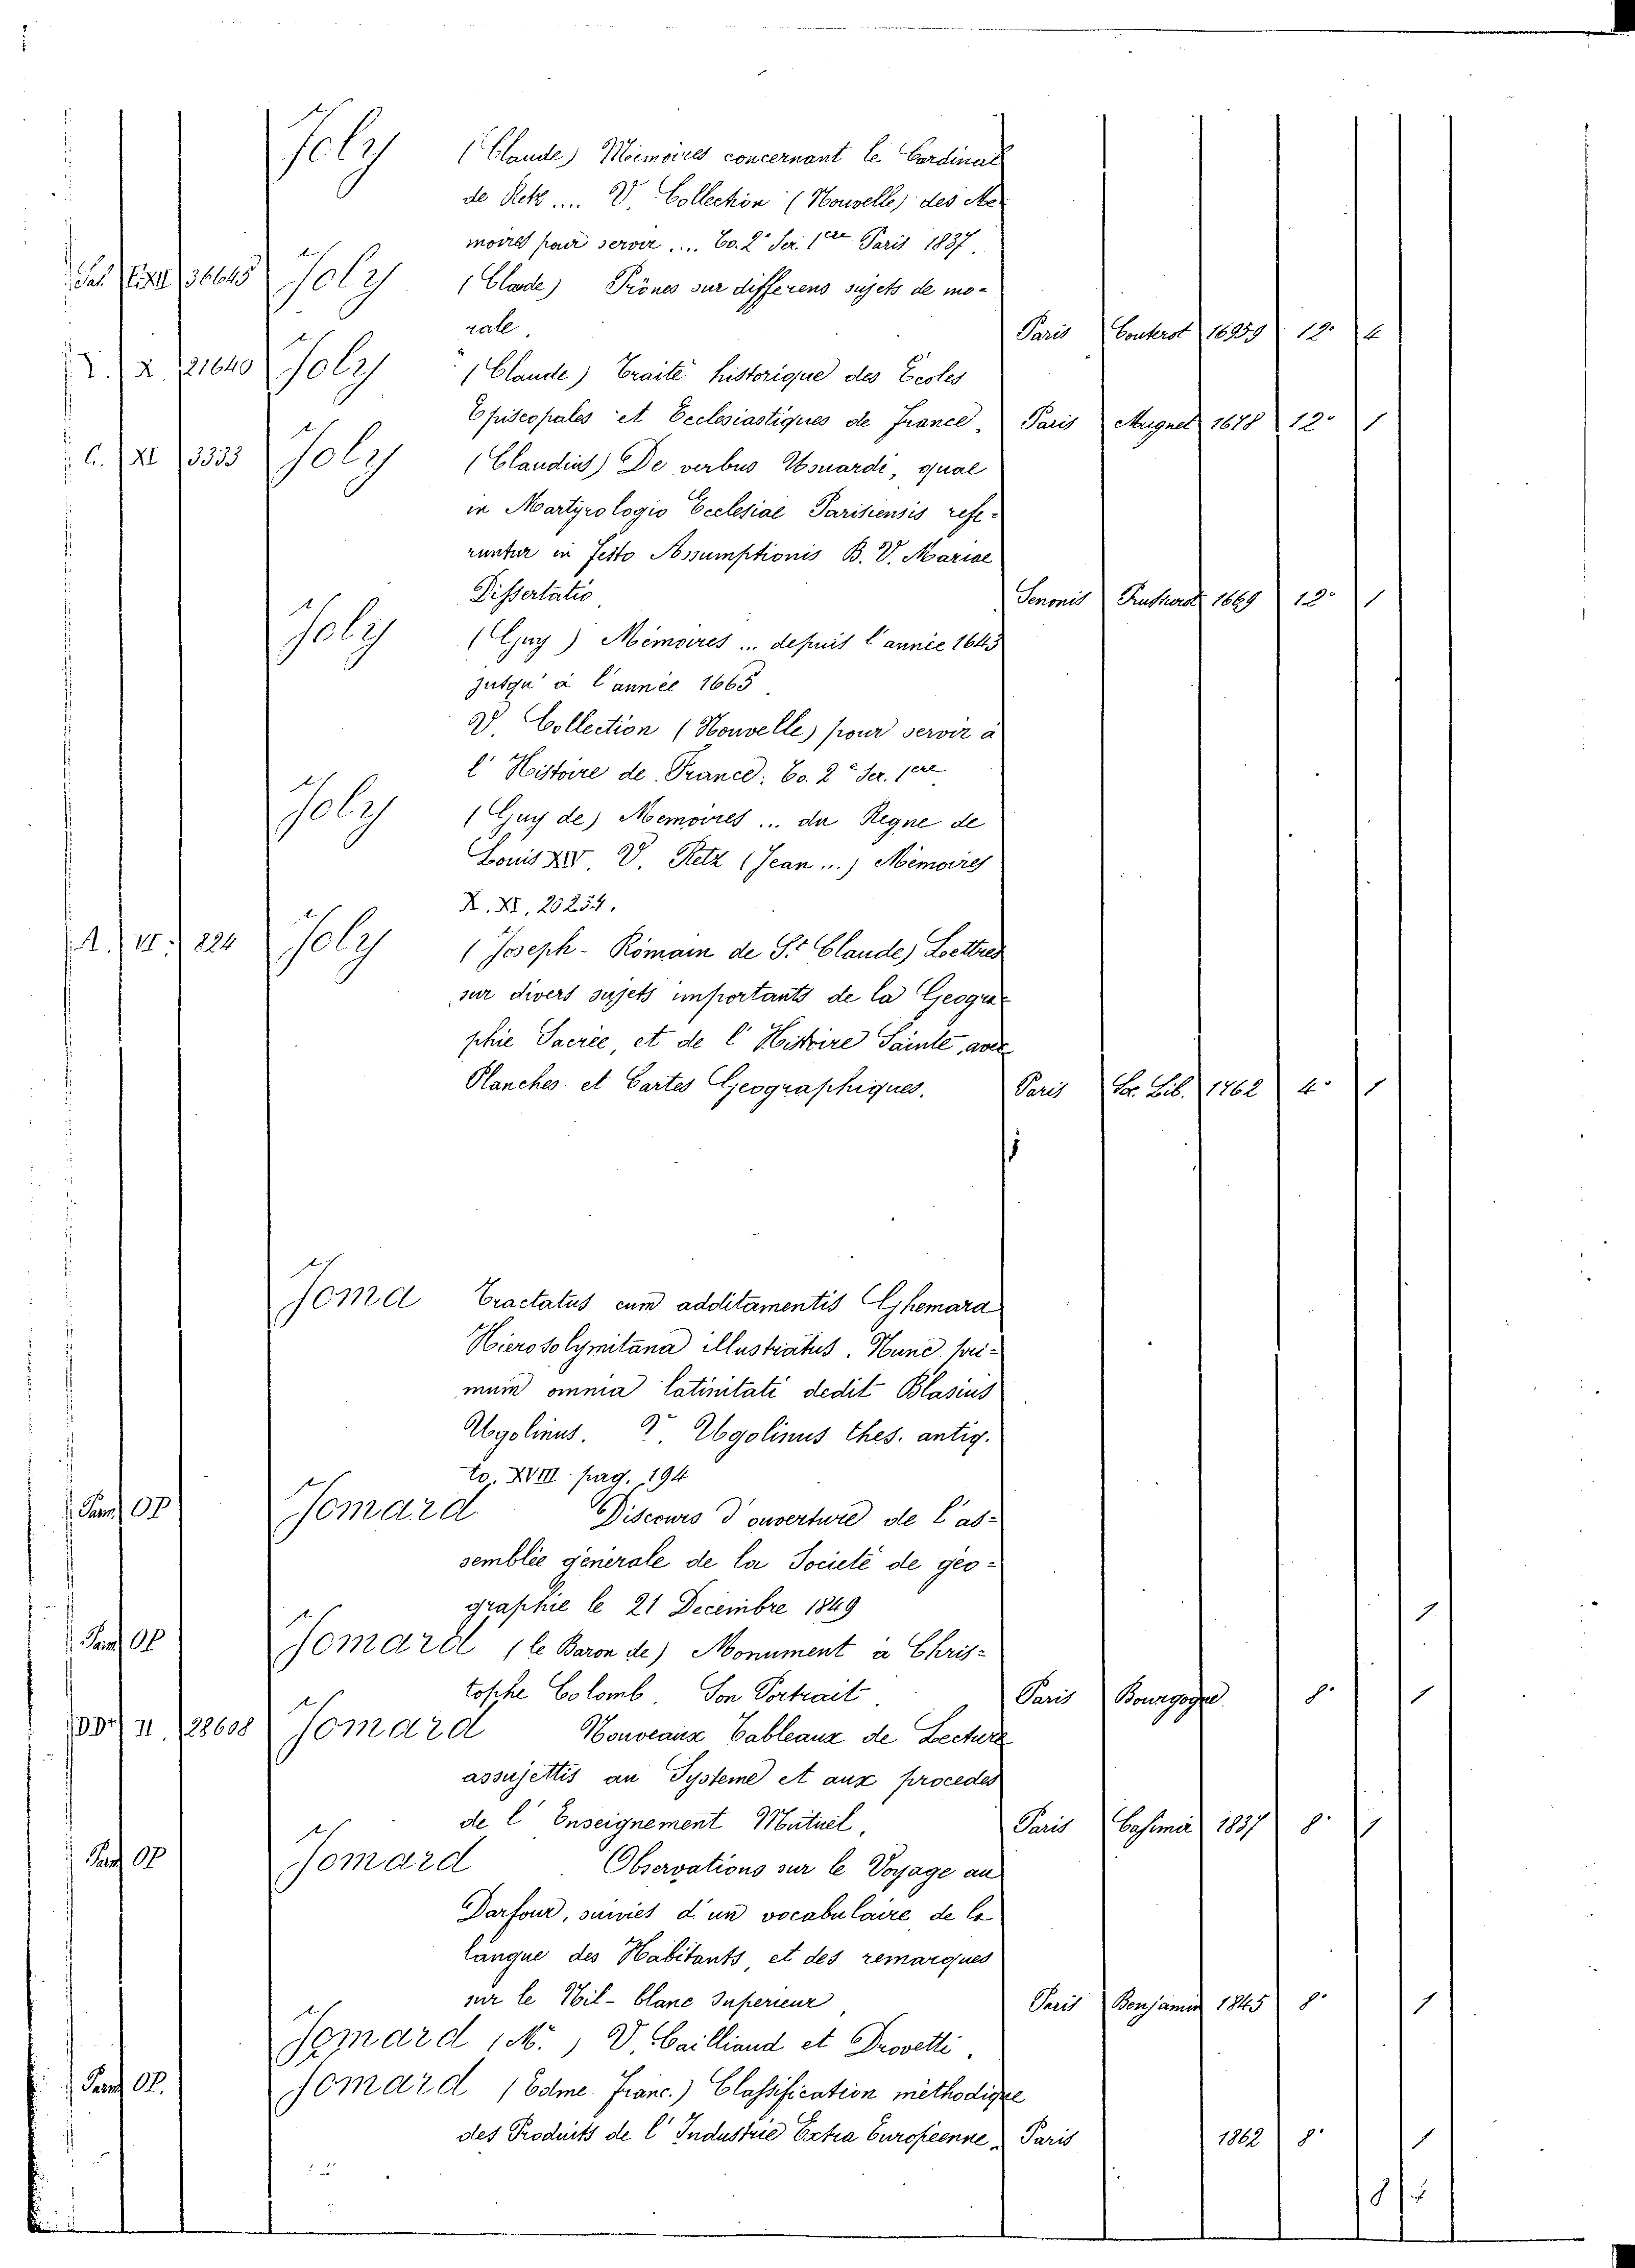 Joly (Claude) Mémoires concernant le Cardinal
de Retz .... V. Collection (Nouvelle) des Me
moires pour servir .... To. 2e Ser. 1ere Paris 1837.
36645 Joly (Claude) Prônes sur differens sujets de mo-
rale. Paris Couterot 12° 4
X. 21640 Joly (Claude) Traité historique des Ecoles
Episcopales et Ecclesiastiques de France. Paris Muguet 1678 12° 1
C. XI 3333 Joly (Claudius) De verbus Usuardi, quae
in Martyrologio Ecclesiae Parisiensis refe-
runtur in festo Assumptionis B. V. Mariae
Dissertatio Senonis 1669 12° 1
Joly (Guy) Mémoires ... depuis l'année 1643
jusqu' à l'année 1665.
V. Collection (Nouvelle) pour servir à
l' Histoire de France. To. 2e Ser. 1ere
Joly (Guy de) Memoires ... du Regne de
Louis XIV. V. Retz (Jean ...) Mémoires
X. XI. 23254.
A. VI. 824 Joly (Joseph - Romain de St. Claude) Lettres
sur divers sujets importants de la Geogra-
phie Sacrée, et de l' Histoire Sainte, avec
Planches et Cartes Geographiques. Paris Soc. Lib. 1762 4° 1
Joma Tractatus cum additamentis Ghemara
Hierosolymitana illustratus. Hunc pri-
mum omnia latinitati dedit Blasius
Ugolinus. V. Ugolinus thes. antiq.
to. XVIII pag. 194
Pam OP Jomard Discours d'ouverture de l'as-
semblée generale de la Societé de géo-
graphie le 21 Decembre 1849 1
Pam OP Jomard (le Baron de) Monument a Chris-
tophe Colomb. Son Portrait. Paris Bourgogne 8° 1
II. 28608 Jomard Nouveaux Tableaux de Lecture
assujettis au Systeme et aux procedes
de l' Enseignement Mutuel. Paris Casimir 1837 8° 1
Pam OP Jomard Observations sur le Voyage au
Darfour, suivies d'un vocabulaire de la
langue des Habitants, et des remarques
sur le Nil-blanc Superieur, Paris Benjamin 1845 8° 1
Jomard (M.) V. Cailliaud et Drovetti.
Pam OP. Jomard (Edme. Franc.) Classification méthodique
des Produits de l' Industrie Extra Européenne. Paris 1862 8° 1